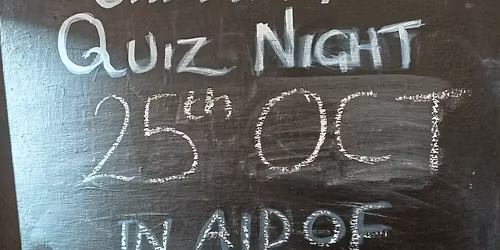 QUIZ NIGHT
25th OCT
IN AID OF